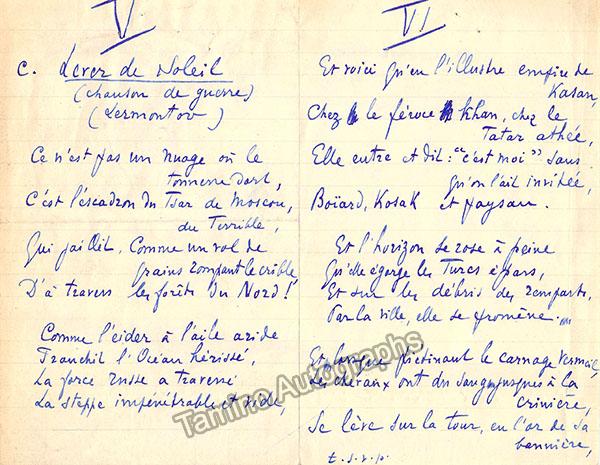 V
C. Lever de Soleil
(chanson de guerre)
(Lermontov)
Ce n'est pas un nuage où le
tonnerre dort,
C'est l'escadron du Tsar de Moscou,
du Terrible,
Qui jaillit, comme un vol de
grains rompant le crible,
D'à travers les forêts du Nord!
Comme l'eider à l'aile avide
Franchit l'Océan hérissé,
La force russe a traversé
La steppe impénétrable et vide,
VI
Et voici qu'en l'illustre empire de
Kasan,
Chez le féroce Khan, chez le
Tatar athée,
Elle entre et dit: "c'est moi" sans
qu'on l'ait invitée,
Boïard, Kosak et paysan.
Et l'horizon se rose à peine
Qu'elle égorge les Turcs épars,
Et sur les débris des remparts,
Par la ville, elle se promène....
Et lorsque piétinant le carnage vermeil,
Les chevaux ont du sang jusques à la
crinière,
Se lève sur la tour, en l'or de sa
bannière,
t.s.v.p.
Tamino Autographs